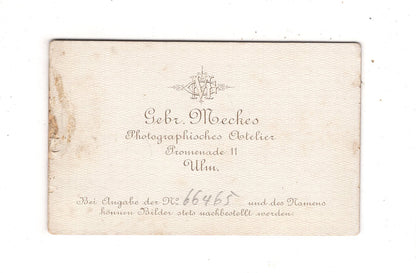 Gebr. Meckes
Photographisches Atelier
Promenade 11
Ulm.
Bei Angabe der No 66465 und des Namens
können Bilder stets nachbestellt werden